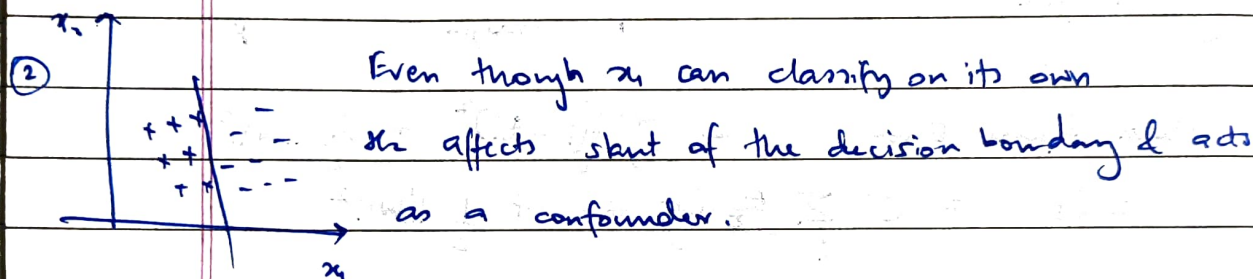 x₂
② Even though x₁ can classify on its own
x₂ affects slant of the decision boundary & acts
as a confounder.
x₁